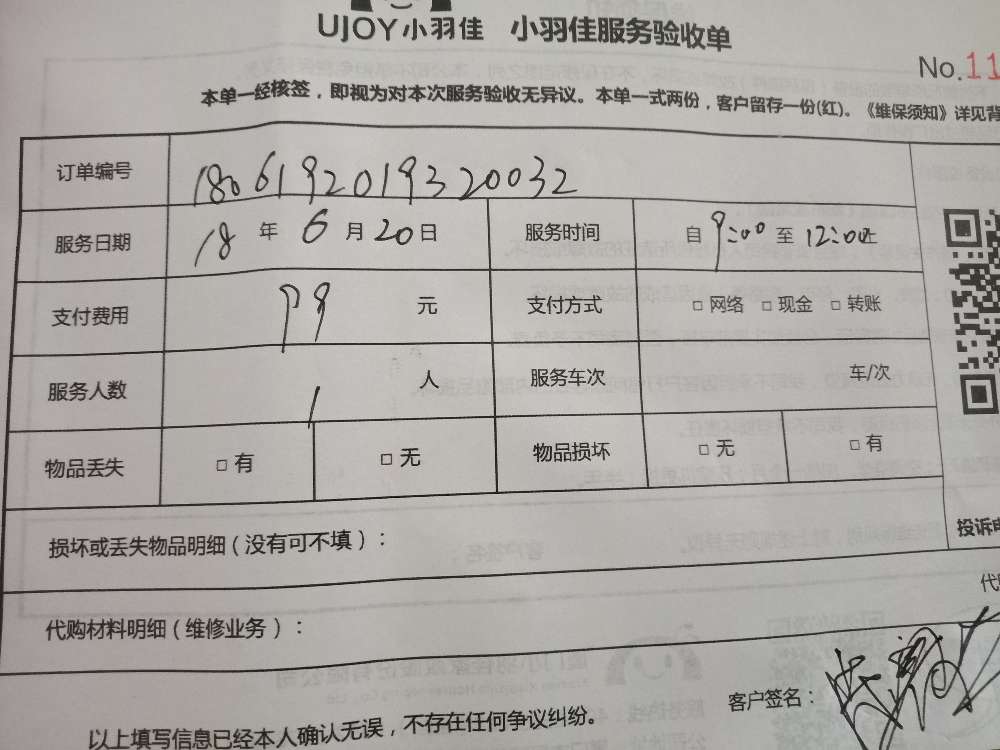 UJOY小羽佳 小羽佳服务验收单
No.11
本单一经核签，即视为对本次服务验收无异议。本单一式两份，客户留存一份(红)。《维保须知》详见背
订单编号 180619201932​0032
服务日期 18 年 6 月 20 日 服务时间 自 9:00 至 12:00 止
支付费用 79 元 支付方式 □ 网络 □ 现金 □ 转账
服务人数 1 人 服务车次 车/次
物品丢失 □ 有 □ 无 物品损坏 □ 无 □ 有
损坏或丢失物品明细（没有可不填）：
投诉电
代购材料明细（维修业务）：
代
客户签名：
以上填写信息已经本人确认无误，不存在任何争议纠纷。